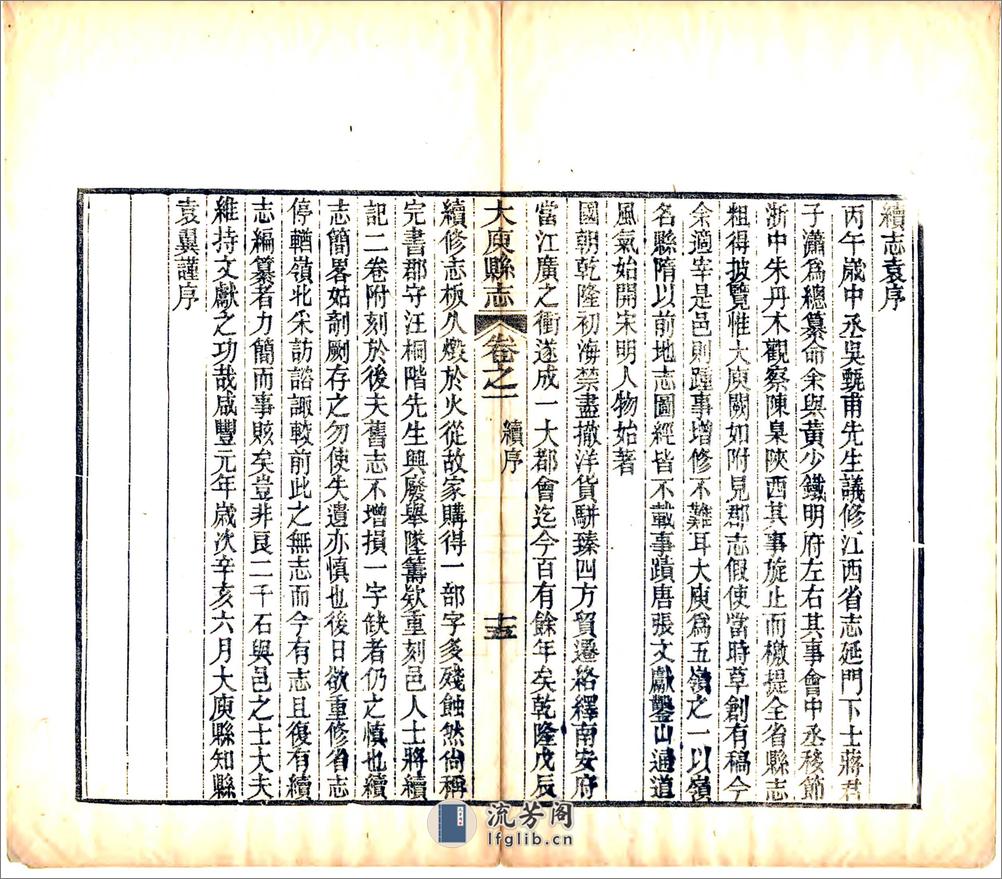 續志袁序
丙午歲中丞吳甄甫先生議修江西省志延門下士蔣君
子瀟爲總纂命余與黃少鐵明府左右其事會中丞移節
浙中朱丹木觀察陳臬陝西其事旋止而檄提全省縣志
粗得披覽惟大庾闕如附見郡志假使當時草創有稿今
余適宰是邑則踵事增修不難耳大庾爲五嶺之一以嶺
名縣隋以前地志圖經皆不載事蹟唐張文獻鑿山通道
風氣始開宋明人物始著
國朝乾隆初海禁盡撤洋貨駢臻四方貿遷絡繹南安府
當江廣之衝遂成一大都會迄今百有餘年矣乾隆戊辰
大庾縣志
卷之一
續序
十五
續修志板久燬於火從故家購得一部字多殘蝕然尙稱
完書郡守汪桐階先生興廢舉墜籌欵重刻邑人士將續
記二卷附刻於後夫舊志不增損一字缺者仍之愼也續
志簡畧姑剞劂存之勿使失遺亦愼也後日欲重修省志
停輶嶺北采訪諮諏較前此之無志而今有志且復有續
志編纂者力簡而事賅矣豈非良二千石與邑之士大夫
維持文獻之功哉咸豐元年歲次辛亥六月大庾縣知縣
袁翼謹序
流芳阁
lfglib.cn